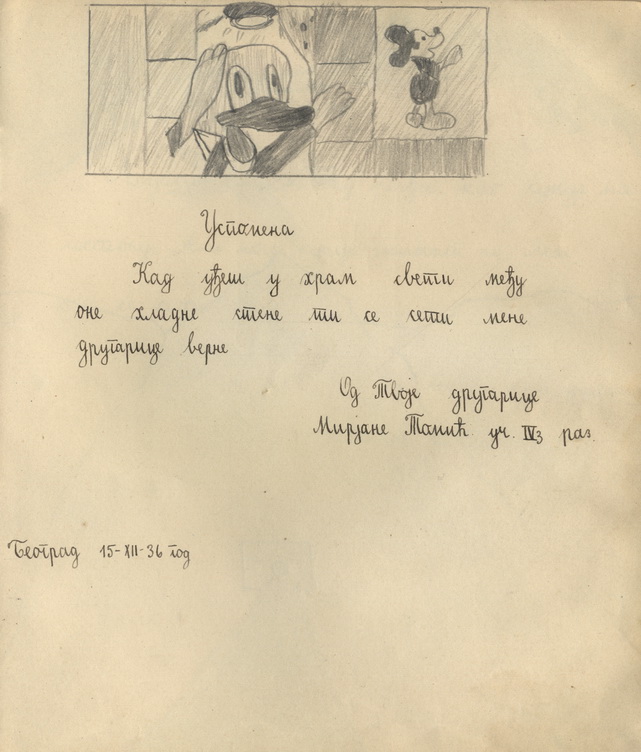 Успомена
Кад уђеш у храм свети међу
оне хладне стене ти се сети мене
другарице верне
Од Твоје другарице
Мирјане Танић. уч. IV3 раз.
Београд 15-XII-36 год